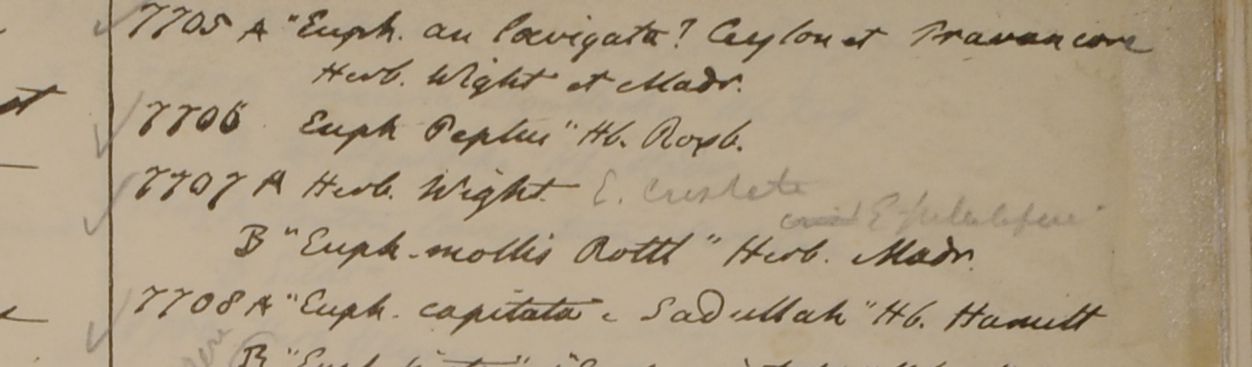 7705 A "Euph. an lævigata? Ceylon et Travancore
Herb. Wight et Madr.
7706 Euph Peplus" Hb. Roxb.
7707 A Herb. Wight E. cristata
B "Euph. mollis Rottl" Herb. Madr.
7708 A "Euph. capitata Sadullah" Hb. Hamilt
B "Euph.